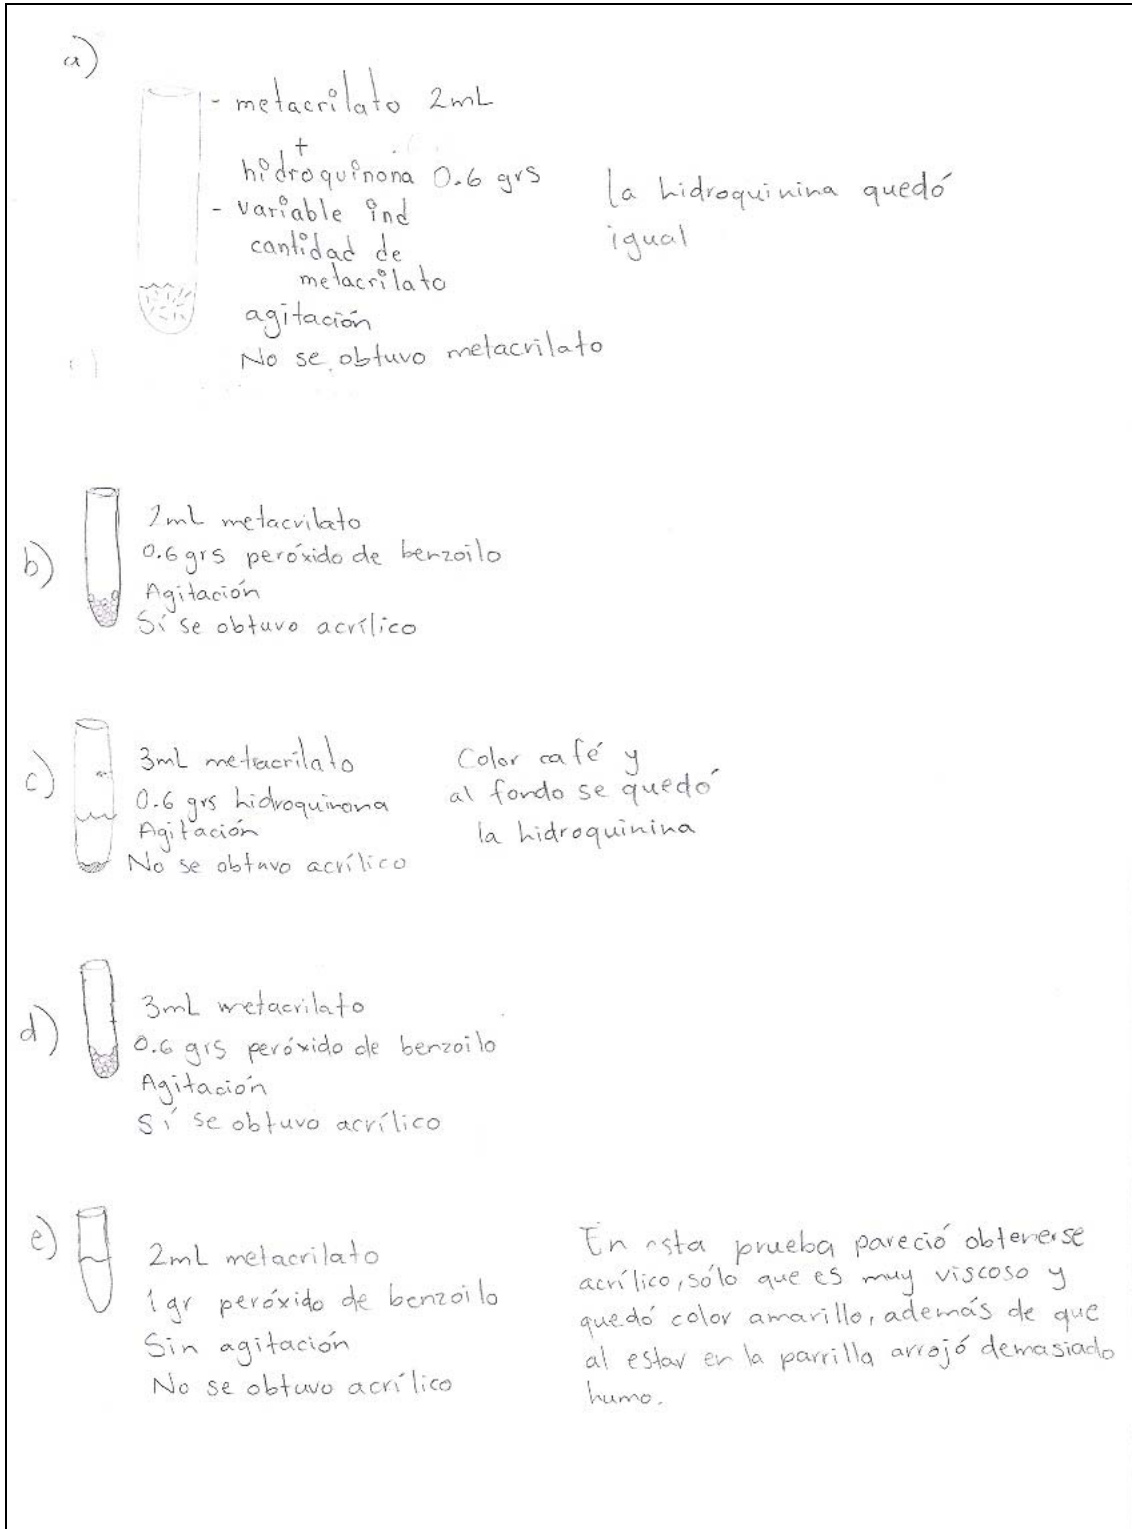 a)
- metacrilato 2mL
+
hidroquinona 0.6 grs
- variable ind
cantidad de
metacrilato
agitación
No se obtuvo metacrilato
la hidroquinina quedó
igual
b)
2mL metacrilato
0.6 grs peróxido de benzoilo
Agitación
Sí se obtuvo acrílico
c)
3mL metacrilato
0.6 grs hidroquinona
Agitación
No se obtuvo acrílico
Color café y
al fondo se quedó
la hidroquinina
d)
3mL metacrilato
0.6 grs peróxido de benzoilo
Agitación
Sí se obtuvo acrílico
e)
2mL metacrilato
1 gr peróxido de benzoilo
Sin agitación
No se obtuvo acrílico
En esta prueba pareció obtenerse
acrílico, sólo que es muy viscoso y
quedó color amarillo, además de que
al estar en la parrilla arrojó demasiado
humo.